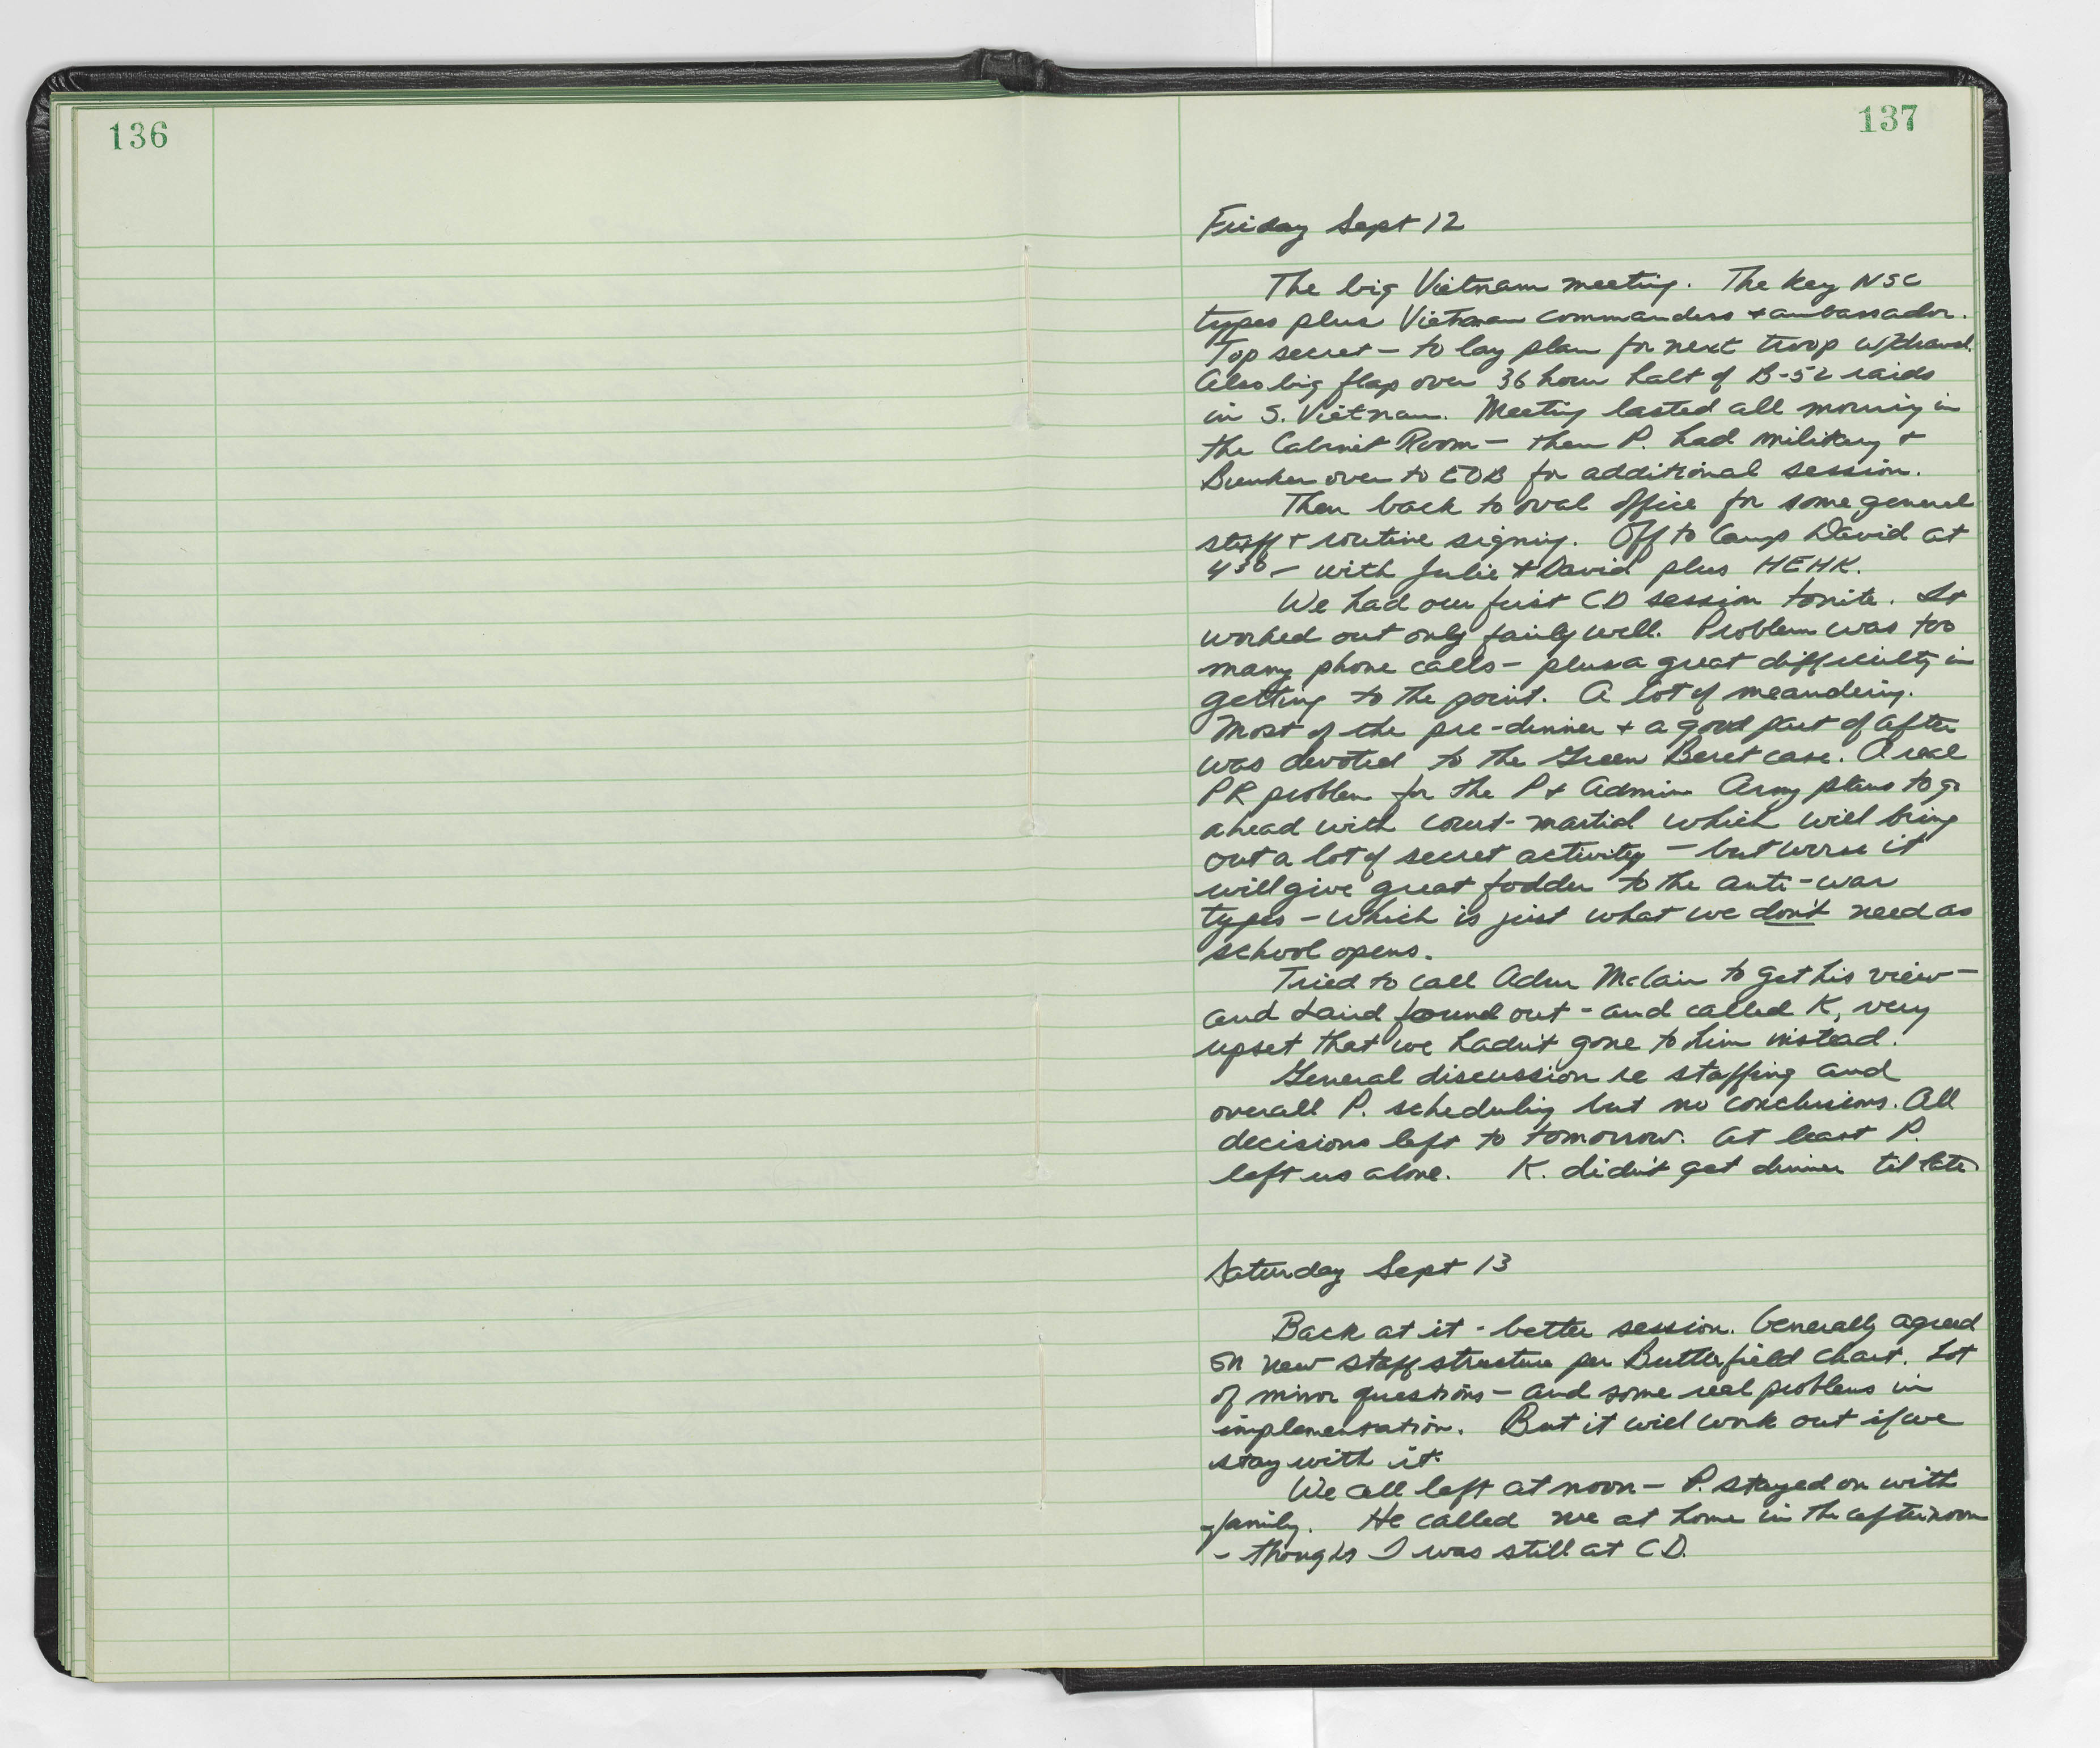 136
137
Friday Sept 12
The big Vietnam meeting. The key NSC
types plus Vietnam commanders + ambassador.
Top secret – to lay plan for next troop w/drawl.
Also big flap over 36 hour halt of B-52 raids
in S. Vietnam. Meeting lasted all morning in
the Cabinet Room – then P. had military +
Bunker over to EOB for additional session.
Then back to oval office for some general
staff + routine signing. Off to Camp David at
4³⁰ – with Julie + David plus HEHK.
We had our first CD session tonite. It
worked out only fairly well. Problem was too
many phone calls – plus a great difficulty in
getting to the point. A lot of meandering.
Most of the pre-dinner + a good part of after
was devoted to the Green Beret case. A real
PR problem for the P + Admin Army plans to go
ahead with court-martial which will bring
out a lot of secret activity – but worse it
will give great fodder to the anti-war
types – which is just what we don't need as
school opens.
Tried to call Adm McCain to get his view –
and Laird found out - and called K, very
upset that we hadn't gone to him instead.
General discussion re staffing and
overall P. scheduling but no conclusions. All
decisions left to tomorrow. At least P.
left us alone. K. didn't get dinner til late
Saturday Sept 13
Back at it - better session. Generally agreed
on new staff structure per Butterfield chart. Lot
of minor questions – and some real problems in
implementation. But it will work out if we
stay with it.
We all left at noon – P. stayed on with
family. He called me at home in the afternoon
- thought I was still at CD.